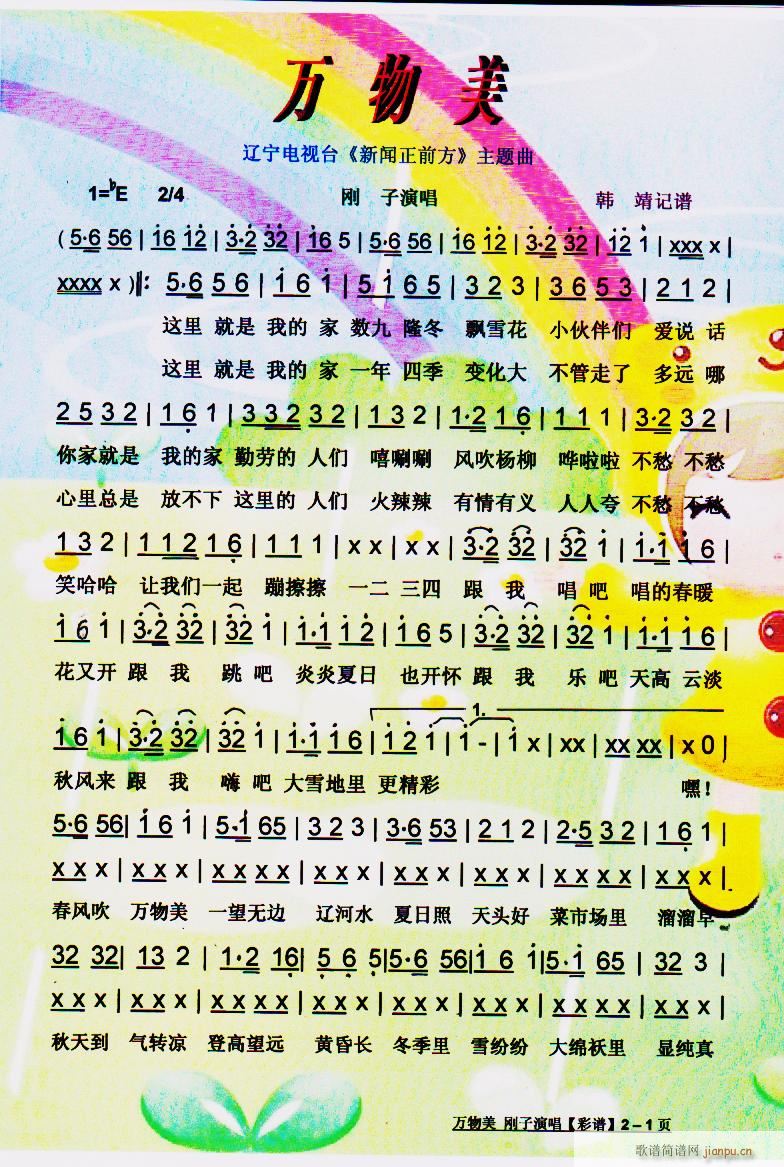 万物美
辽宁电视台《新闻正前方》主题曲
1=♭E 2/4 刚 子演唱 韩 靖记谱
( 5·6 56 | i6 i2 | 3·2 32 | i6 5 | 5·6 56 | i6 i2 | 3·2 32 | i2 i | xxx x |
xxxx x ) ‖: 5·6 5 6 | i 6 i | 5 i 6 5 | 3 2 3 | 3 6 5 3 | 2 1 2 |
这里 就是 我的 家 数九 隆冬 飘雪花 小伙伴们 爱说 话
这里 就是 我的 家 一年 四季 变化大 不管走了 多远 哪
2 5 3 2 | 1 6 1 | 3 3 2 3 2 | 1 3 2 | 1·2 1 6 | 1 1 1 | 3·2 3 2 |
你家就是 我的家 勤劳的 人们 嘻唰唰 风吹杨柳 哗啦啦 不愁 不愁
心里总是 放不下 这里的 人们 火辣辣 有情有义 人人夸 不愁 不愁
1 3 2 | 1 1 2 1 6 | 1 1 1 | x x | x x | 3·2 32 | 32 i | i·i i 6 |
笑哈哈 让我们一起 蹦擦擦 一二 三四 跟 我 唱 吧 唱的春暖
i 6 i | 3·2 32 | 32 i | i·i i 2 | i 6 5 | 3·2 32 | 32 i | i·i i 6 |
花又开 跟 我 跳 吧 炎炎夏日 也开怀 跟 我 乐 吧 天高 云淡
1.
i 6 i | 3·2 32 | 32 i | i·i i 6 | i 2 i | i - | i x | xx | xx xx | x 0 |
秋风来 跟 我 嗨 吧 大雪地里 更精彩 嘿!
5·6 56 | i 6 i | 5·i 65 | 3 2 3 | 3·6 53 | 2 1 2 | 2·5 3 2 | 1 6 1 |
x x x | x x x | x x x x | x x x | x x x | x x x | x x x x | x x x |
春风吹 万物美 一望无边 辽河水 夏日照 天头好 菜市场里 溜溜早
32 32 | 13 2 | 1·2 16 | 5 6 5 | 5·6 56 | i 6 i | 5·i 65 | 32 3 |
x x x | x x x | x x x x | x x x | x x x | x x x | x x x x | x x x |
秋天到 气转凉 登高望远 黄昏长 冬季里 雪纷纷 大绵袄里 显纯真
万物美 刚子演唱【彩谱】2－1页
歌谱简谱网
jianpu.cn